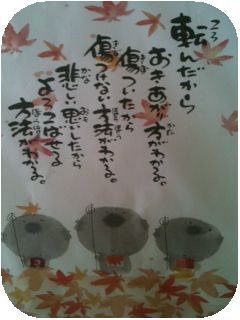 転んだから
おきあがり方がわかる。
傷ついたから
傷つけない方法がわかる。
悲しい思いしたから
よろこばせる
方法がわかる。